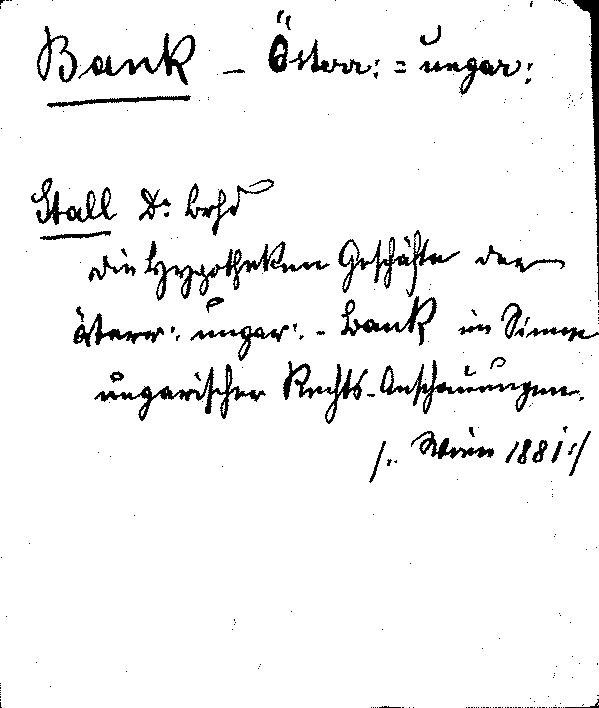 Bank – Österr: = ungar:
Stall Dr
die Hypotheken Geschäfte der
österr: ungar: - Bank im Sinne
ungarischer Rechts-Anschauungen.
/: Wien 1881 :/